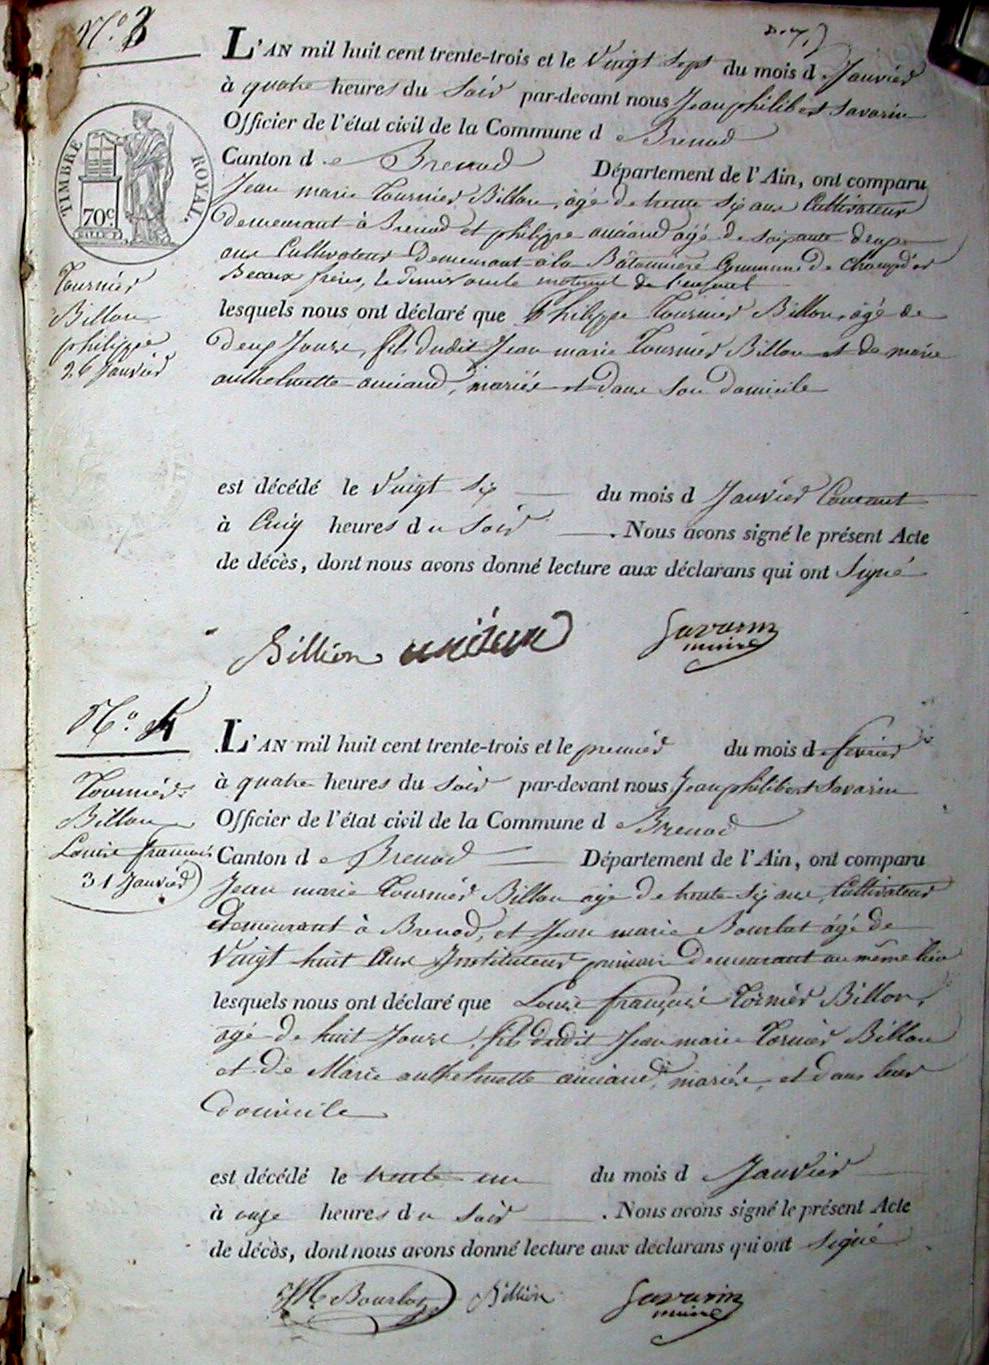 N.º 3
L'AN mil huit cent trente-trois et le Vingt Sept du mois de Janvier
à quatre heures du Soir par-devant nous Jean philibert Savarin
Officier de l'état civil de la Commune de Brenod
Canton de Brenod Département de l'Ain, ont comparu
Jean marie Tournier Billon, âgé de trente Six ans Cultivateur
demeurant à Brenod et philippe anciand agé de Soixante deux
ans Cultivateur Demeurant à la Bâtonnière Commune de Champdor
Beaux frères, le dernier oncle maternel de l'enfant
lesquels nous ont déclaré que Philippe Tournier Billon, âgé de
deux Jours, fils dudit Jean marie Tournier Billon et de marie
anthelmette anciand, mariés et dans Son domicile
est décédé le Vingt Six du mois de Janvier Courant
à Cinq heures du Soir. Nous avons signé le présent Acte
de décès, dont nous avons donné lecture aux déclarans qui ont Signé
Billion Savarin
maire
TIMBRE ROYAL
70c
Tournier
Billon
philippe
26 Janvier
N.º 4
L'AN mil huit cent trente-trois et le premier du mois de fevrier
à quatre heures du Soir par-devant nous Jean philibert Savarin
Officier de l'état civil de la Commune de Brenod
Canton de Brenod Département de l'Ain, ont comparu
Jean marie Tournier Billon âgé de trente Six ans, Cultivateur
demeurant à Brenod, et Jean marie Bourlot âgé de
Vingt huit Ans Instituteur primair Demeurant au même lieu
lesquels nous ont déclaré que Louis françois Tornier Billon,
agé de huit Jours, fils dudit Jean marie Tornier Billon
et de Marie anthelmette anciand, mariés, et dans leur
domicile
est décédé le trente un du mois de Janvier
à onze heures du Soir. Nous avons signé le présent Acte
de décès, dont nous avons donné lecture aux déclarans qui ont signé
Bourlot Billion Savarin
maire
Tournier
Billon
Louis françois
31 Janvier